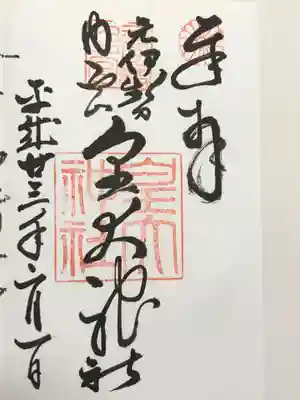 奉拝
元伊勢
内宮
皇大神社
平成廿三年
月一日
皇大
神社